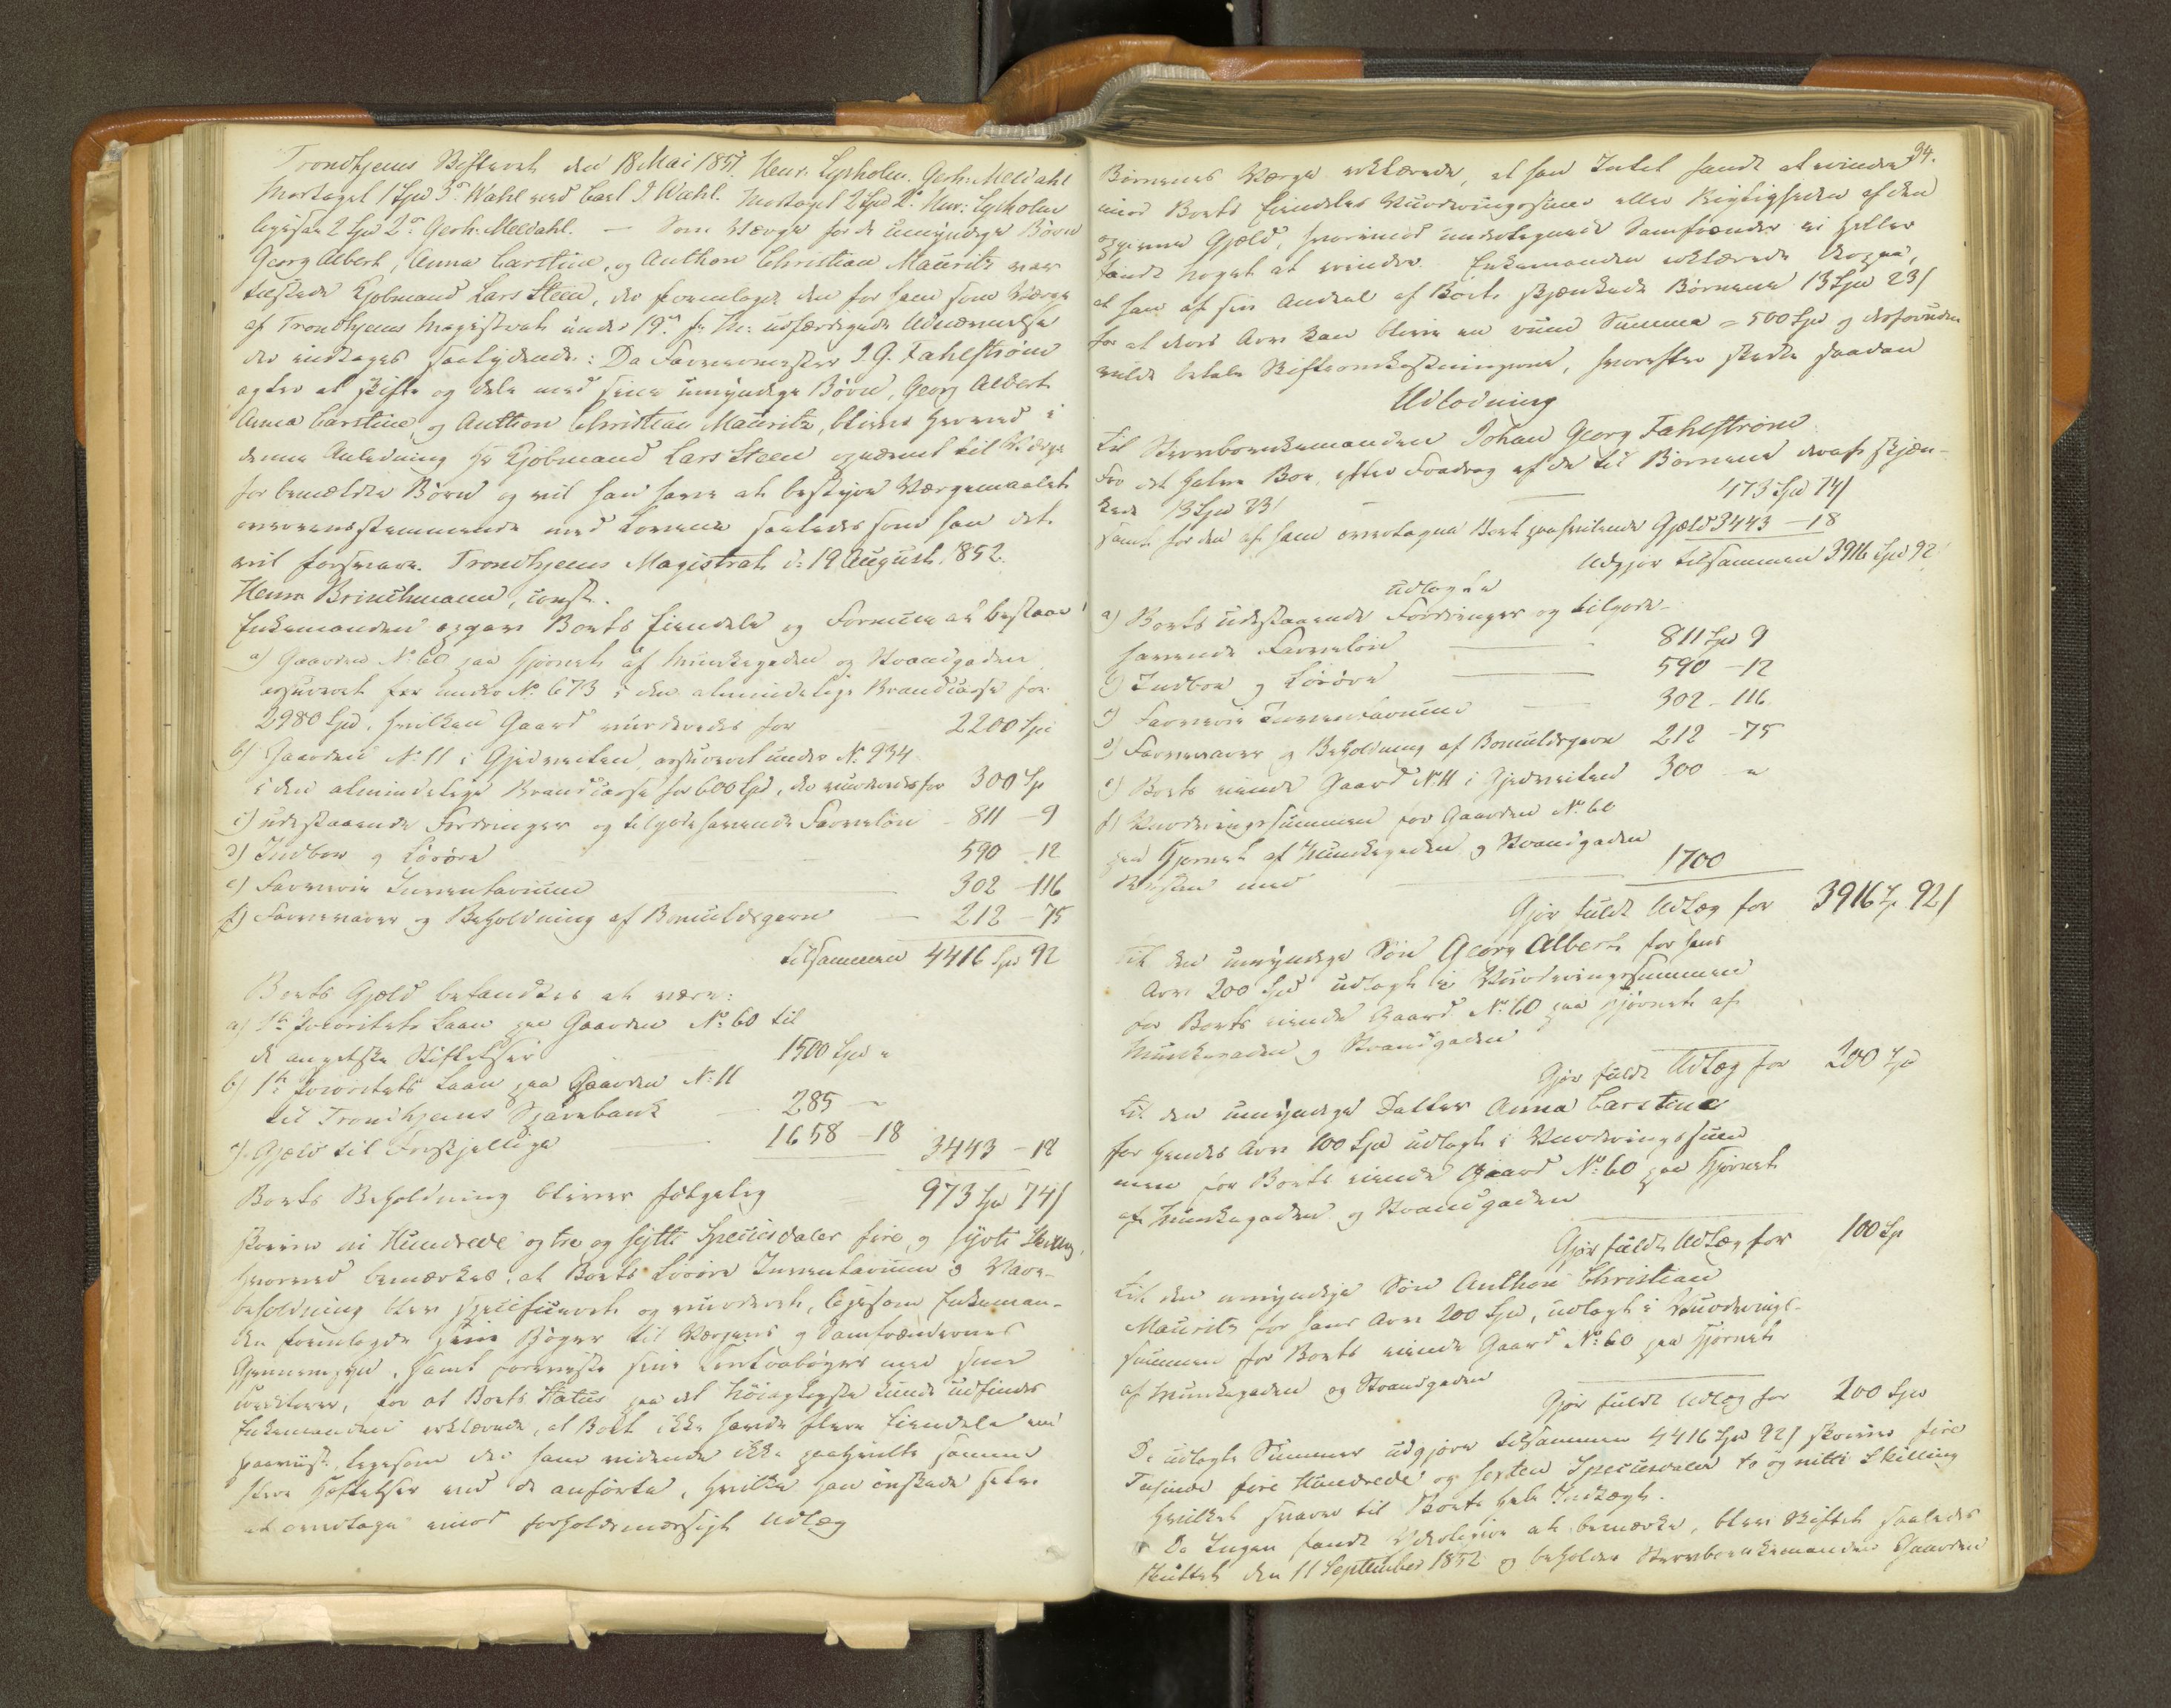 Trondhjems Skifteret den 18 Mai 1857. Henr. Lysholm. Gerh. Meldahl
Modtaget 1 Spd 3 Wahl ved Carl I Wahl. Modtaget 2 Spd Hnr: Lysholm
ligesaa 2 Spd Gerh: Meldahl. — Som Værge for de umyndige Børn
Georg Albert, Anna Carstine, og Anthon Christian Mauritz var
tilstede Kjøbmand Lars Steen, der fremlagde den for ham som Værge
af Trondhjems Magistrat under 19de f: M: udfærdigede Udnævnelse
der indtages saalydende: Da Farvermester I. G. Fahlstrøm
agter at skifte og dele med sine umyndige Børn, Georg Albert
Anna Carstine og Anthon Christian Mauritz, bliver herved i
denne Anledning Hr Kjøbmand Lars Steen opnævnt til Værge
for bemeldte Børn og vil han have at bestyre Værgemaalet
overensstemmende med Lovene saaledes som han det
vil forsvare. Trondhjems Magistrat d: 19 August 1852.
Henr Brinchmann, const.
Enkemanden opgav Boets Eiendele og Formue at bestaae i
a) Gaarden No 60 paa Hjørnet af Munkegaden og Strandgaden
assureret under No 673 i den almindelige Brandcasse for
2980 Spd, hvilken Gaard vurderedes for 2200 Spd
b) Gaarden No 11 i Gjedveiten, assureret under No 934
i den almindelige Brandcasse for 600 Spd, der vurderedes for 300 Sp
c) udestaaende Fordringer og tilgodehavende Farveløn 811 - 9
d) Indboe og Løsøre 590 - 12
e) Farverie Inventarium 302 - 116
f) Farvevarer og Beholdning af Bomuldsgarn 212 - 75
tilsammen 4416 Spd 92
Boets Gjæld befandtes at være:
a) 1ste Prioritets Laan paa Gaarden No 60 til
de angelske Stiftelser 1500 Spd "
b) 1ste Prioritets Laan paa Gaarden No 11
til Trondhjems Sparebank 285 -
c) Gjæld til Forskjellige 1658 - 18 3443 - 18
Boets Beholdning bliver følgelig 973 Spd 74/
skriver ni Hundrede og tre og sytti Speciesdaler fire og syvti Skilling,
hvorved bemærkes, at Boets Løsøre Inventarium og Vare-
beholdning blev specificeret og vurderet, ligesom Enkeman-
den fremlagde sine Bøger til Værgens og Samfrændernes
Gjennemsyn, samt foreviste sine Contrabøger med sine
Creditorer, for at Boets Status paa det nøiagtigste kunde udfindes
Enkemanden erklærede, at Boet ikke havde flere Eiendele end
paaviist, ligesom der ham vidende ikke paahvilte samme
flere Heftelser end de anførte, hvilke han ønskede selv
at overtage imod forholdsmæssigt Udlæg
94.
Børnenes Værge erklærede, at han Intet fandt at erindre
imod Boets Eiendeles Vurderingssum eller Rigtigheden af den
opgivne Gjæld, hvorimod undertegnede Samfrænder ei heller
fandt noget at erindre. Enkemanden erklærede derpaa,
at han af sin Andeel af Boet skjænkede Børnene 13 Spd 23/
for at deres Arv kan blive en rund Summa = 500 Spd og desforuden
vilde betale Skifteomkostningerne, hvorefter skede saadan
Udlodning
til Stervboenkemanden Johan Georg Fahlstrøm
For det halve Boe, efter Fradrag af de til Børnene deraf skjæn-
kede 13 Spd 23/ 473 Spd 74/
samt for den af ham overtagne Boet paahvilende Gjæld 3443 - 18
Udgjør tilsammen 3916 Spd 92
udlagde
a) Boets udestaaende Fordringer og tilgode-
havende Farveløn 811 Spd 9
b) Indboe og Løsøre 590 - 12
c) Farverie Inventarium 302 - 116
d) Farvevarer og Beholdning af Bomuldsgarn 212 - 75
e) Boets eiende Gaard No 11 i Gjedveiten 300 "
f) Vurderingssummen for Gaarden No 60
paa Hjørnet af Munkegaden og Strandgaden
med 1700
Gjør fuldt Udlæg for 3916 Sp 92/
til den umyndige Søn Georg Albert for hans
Arv 200 Spd udlagt i Vurderingssummen
for Boets eiende Gaard No 60 paa Hjørnet af
Munkegaden og Strandgaden
Gjør fuldt Udlæg for 200 Sp
til den umyndige Datter Anna Carstine
for hendes Arv 100 Spd udlagt i Vurderingssum
men for Boets eiende Gaard No 60 paa Hjørnet
af Munkegaden og Strandgaden
Gjør fuldt Udlæg for 100 Sp
til den umyndige Søn Anthon Christian
Mauritz for hans Arv 200 Spd, udlagt i Vurderings-
summen for Boets eiende Gaard No 60 paa Hjørnet
af Munkegaden og Strandgaden
Gjør fuldt Udlæg for 200 Spd
De udlagte Summer udgjøre tilsammen 4416 Spd 92/ skriver fire
Tusinde fire Hundrede og sexten Speciesdaler to og nitti Skilling
hvilket svarer til Boets hele Indtægt.
Da Ingen fandt Yderligere at bemærke, blev Skiftet saaledes
sluttet den 11 September 1852 og beholder Stervboenkemanden Gaarden